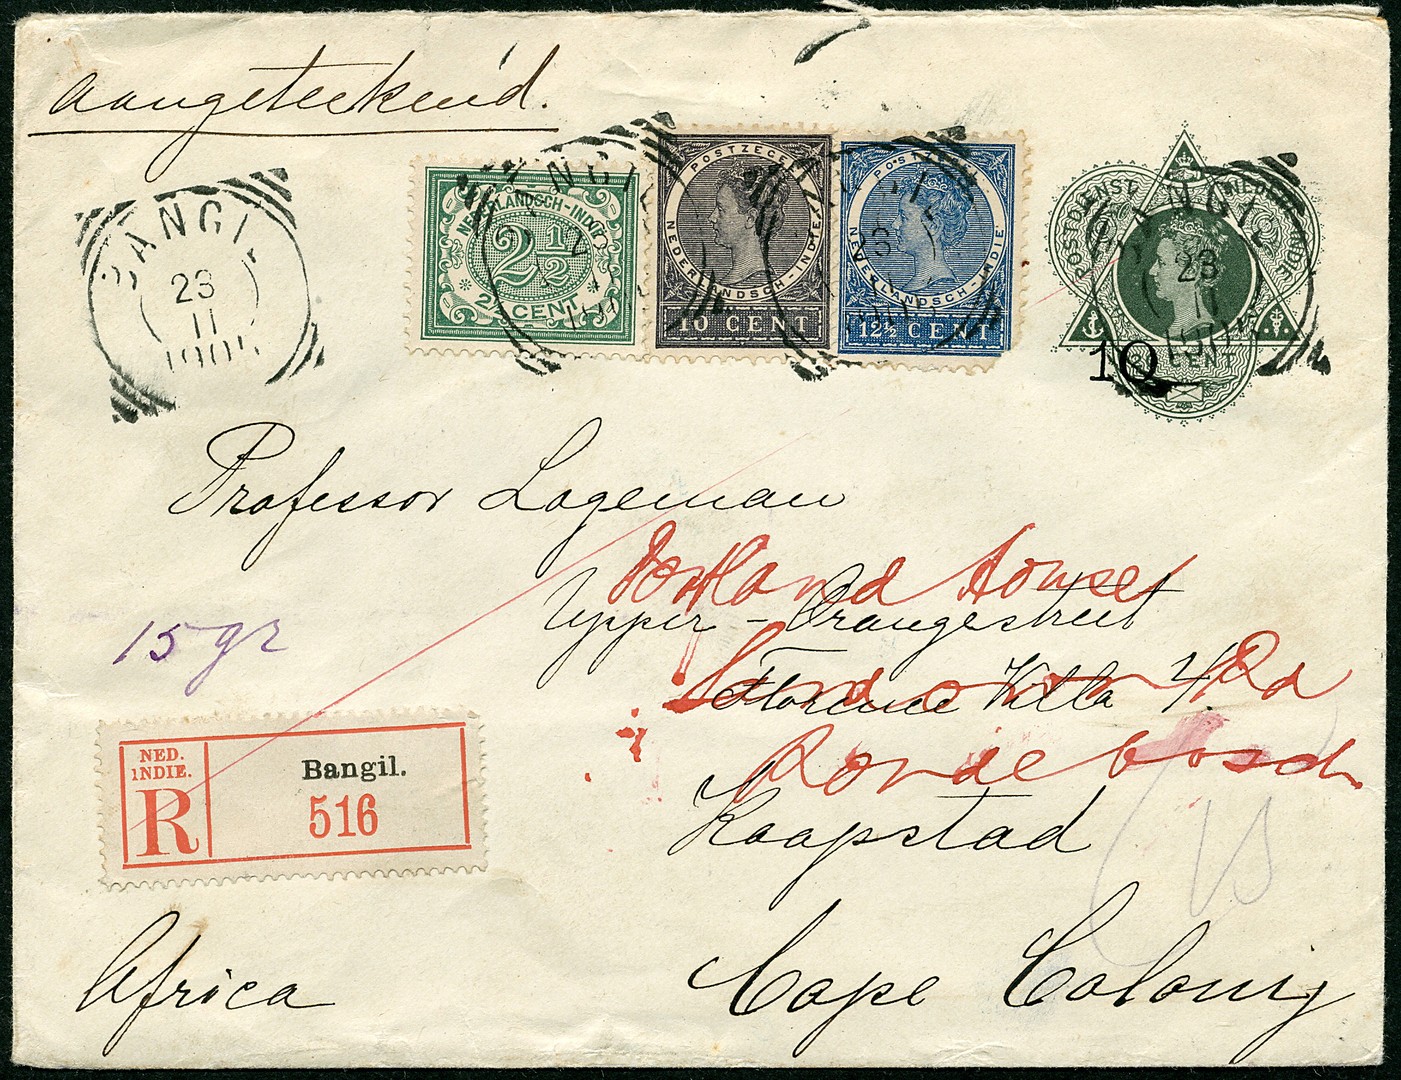 aangeteekend.
BANGIL
23
11
NEDERLANDSCH-INDIE
2½
2½ CENT
POSTZEGEL
NEDERLANDSCH-INDIE
10 CENT
POSTZEGEL
NEDERLANDSCH-INDIE
12½ CENT
BANGIL
23
11
POSTDIENST
NEDERL INDIE
10
CENT
Professor Lageman
House
Upper - Orangestreet
Florence Villa 4.
Rd
Rondebosch
Kaapstad
15 gr
NED.
INDIE.
R
Bangil.
516
Africa
Cape Colony